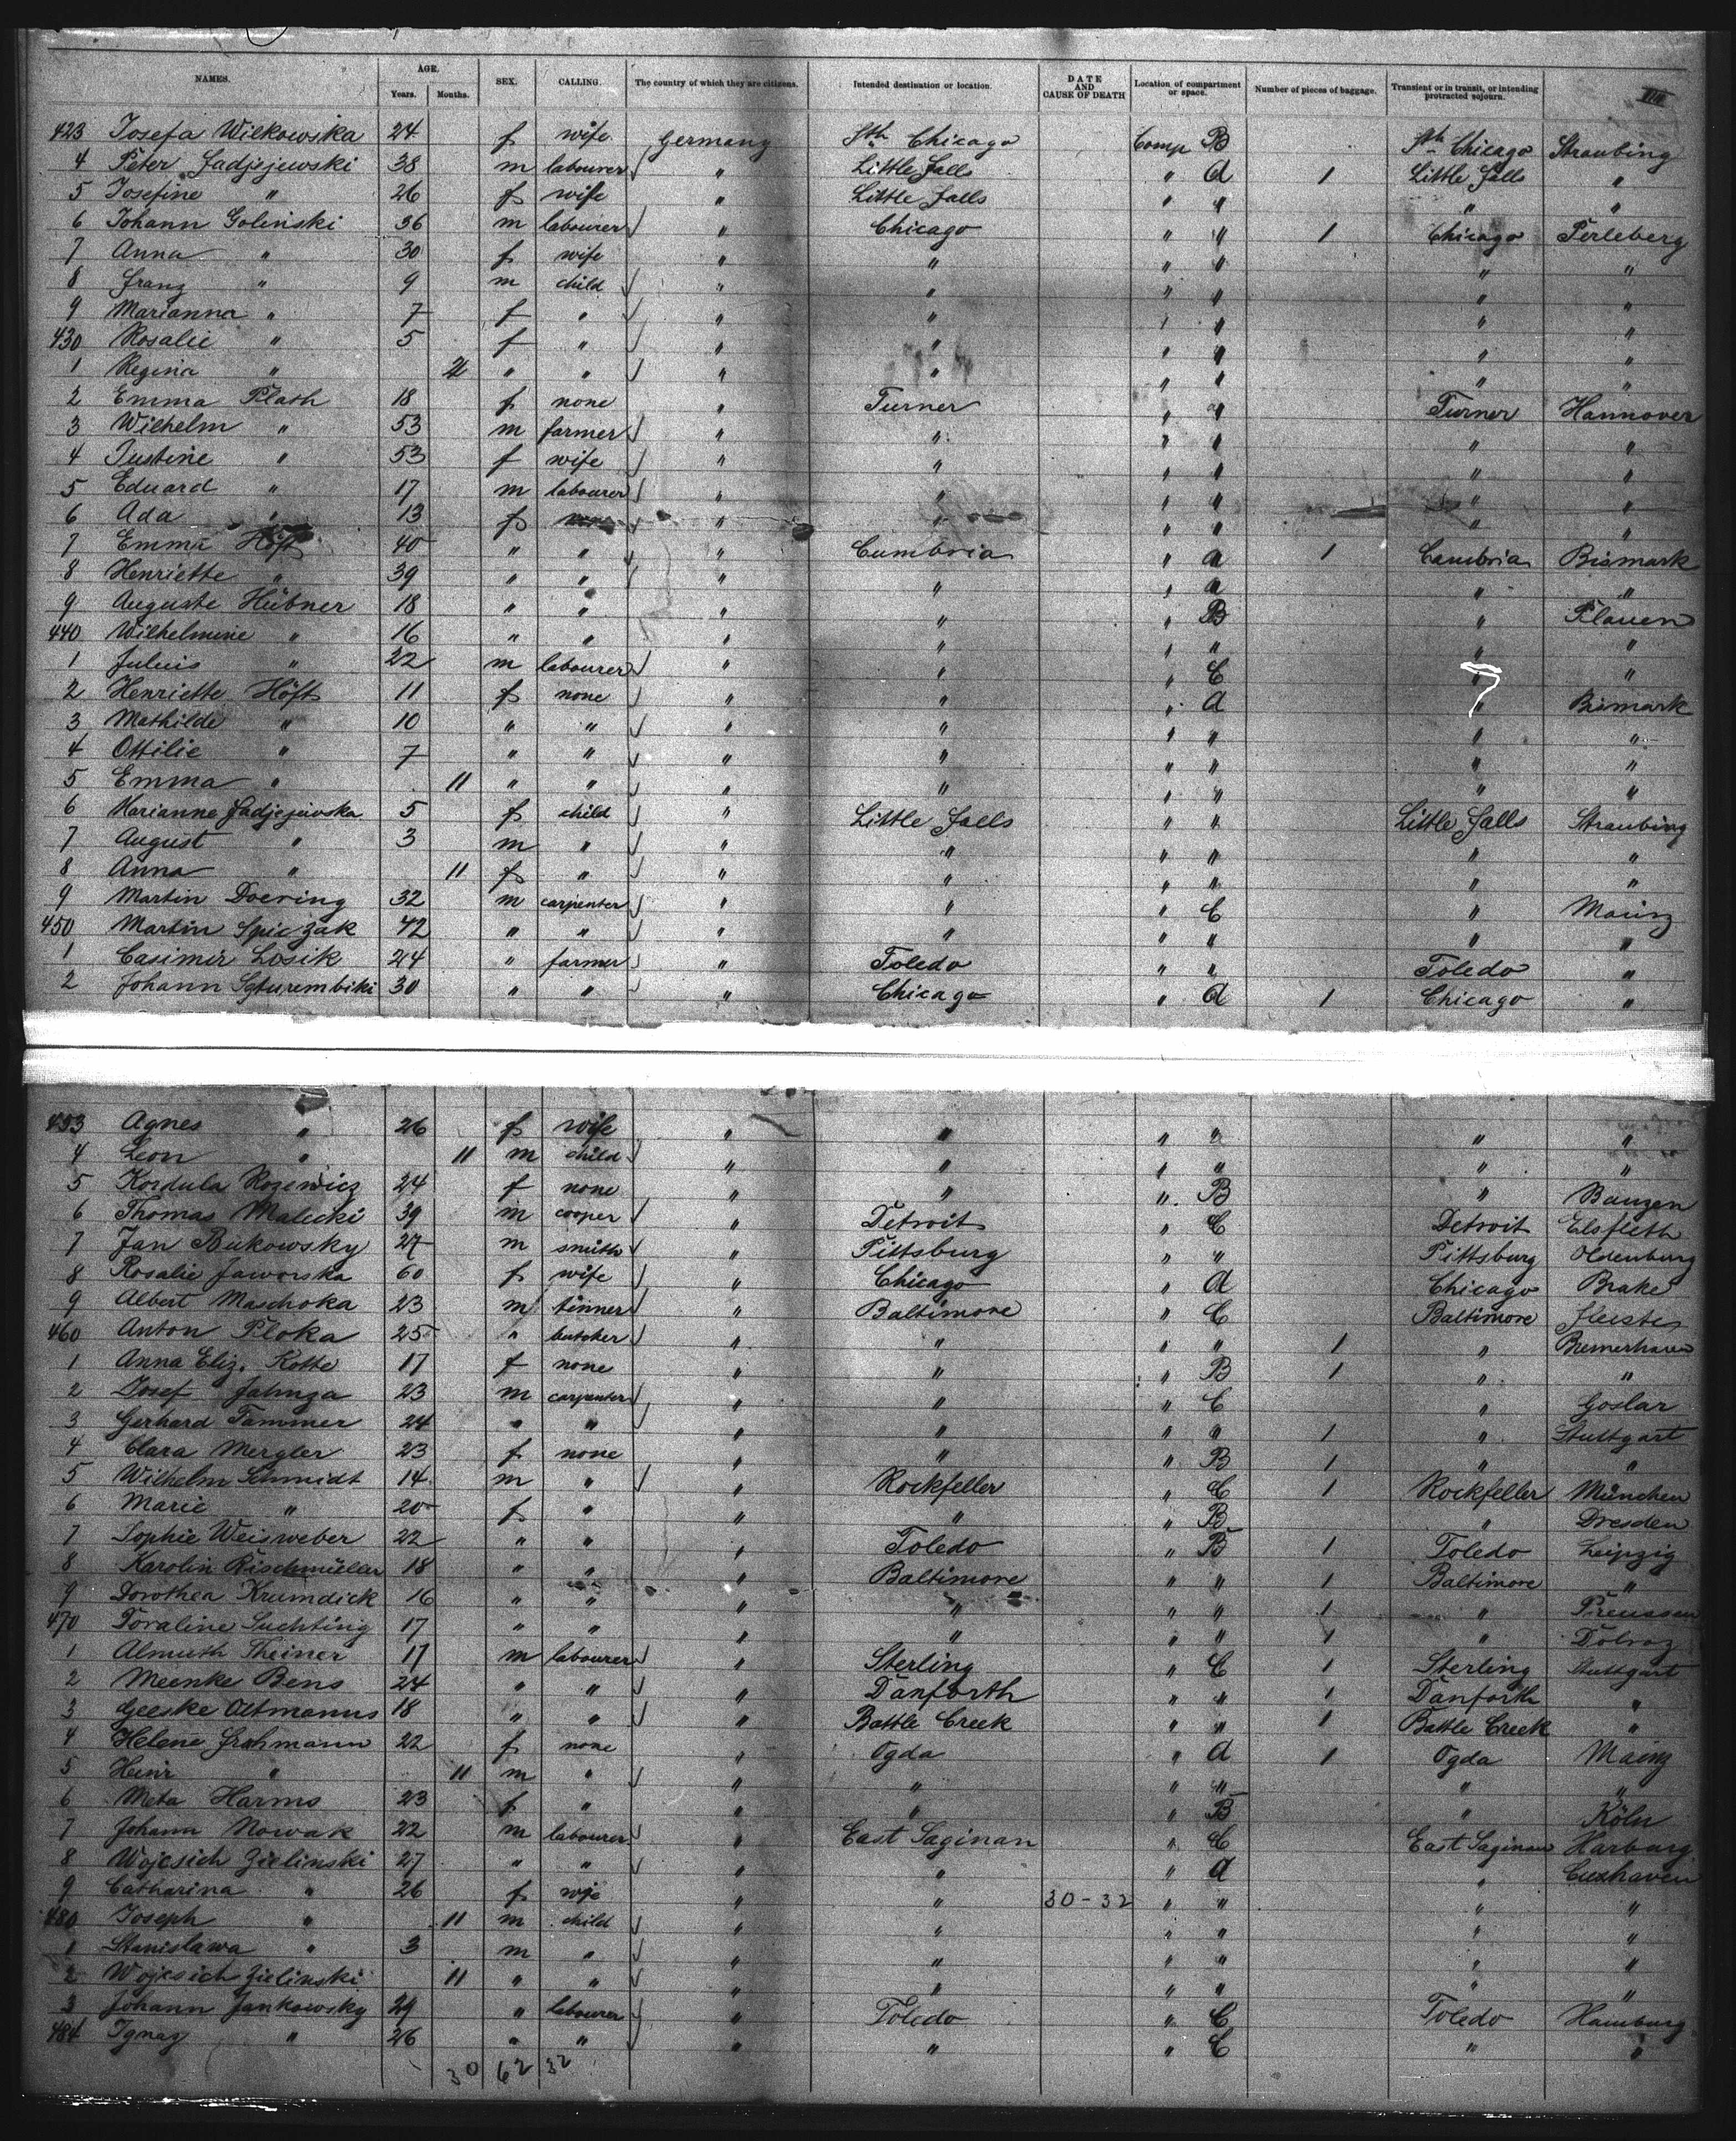 NAMES. AGE. Years. Months. SEX. CALLING. The country of which they are citizens. Intended destination or location. DATE AND CAUSE OF DEATH Location of compartment or space. Number of pieces of baggage. Transient or in transit, or intending protracted sojourn.
423 Josefa Wilkowska 24 f wife Germany Sth Chicago Comp B Sth Chicago Straubing
4 Peter Jadjejewski 38 m labourer " Little Falls " A 1 Little Falls "
5 Josefine " 26 f wife " Little Falls " " " "
6 Johann Golinski 36 m labourer " Chicago " " 1 Chicago Perleberg
7 Anna " 30 f wife " " " " " "
8 Franz " 9 m child " " " " " "
9 Marianna " 7 f " " " " " " "
430 Rosalie " 5 f " " " " " " "
1 Regina " " " " " " " " "
2 Emma Plath 18 f none " Turner " " Turner Hannover
3 Wilhelm " 53 m farmer " " " " " "
4 Justine " 53 f wife " " " " " "
5 Eduard " 17 m labourer " " " " " "
6 Ada " 13 f " " " " " "
7 Emma Höft 40 " " " Cumbria " A 1 Cambria Bismark
8 Henriette " 39 " " " " " A " "
9 Auguste Hübner 18 " " " " " B " Plauen
440 Wilhelmine " 16 " " " " " " " "
1 Julius " 22 m labourer " " " C " "
2 Henriette Höft 11 f none " " " A " Bismark
3 Mathilde " 10 " " " " " " " "
4 Ottilie " 7 " " " " " " " "
5 Emma " 11 " " " " " " " "
6 Marianne Jadjejewska 5 f child " Little Falls " " Little Falls Straubing
7 August " 3 m " " " " " " "
8 Anna " 11 f " " " " " " "
9 Martin Doering 32 m carpenter " " " C " Mainz
450 Martin Spiczak 42 " " " " " " " "
1 Casimir Losik 24 " farmer " Toledo " " Toledo "
2 Johann 30 " " " Chicago " A 1 Chicago "
453 Agnes " 26 f wife " " " " " "
4 Leon " 11 m child " " " " " "
5 Kordula Rozewicz 24 f none " " " B " Bauzen
6 Thomas Malecki 39 m cooper " Detroit " C Detroit Elsfleth
7 Jan Bukowsky 27 m smith " Pittsburg " " Pittsburg Oldenburg
8 Rosalie Jaworska 60 f wife " Chicago " A Chicago Brake
9 Albert Maschoka 23 m tinner " Baltimore " C Baltimore
460 Anton Ploka 25 " butcher " " " " 1 " Bremerhaven
1 Anna Eliz. Kotte 17 f none " " " B 1 " "
2 Josef 23 m carpenter " " " C " Goslar
3 Gerhard Tammer 24 " " " " " " 1 " Stuttgart
4 Clara Mergler 23 f none " " " B 1 " "
5 Wilhelm Schmidt 14 m " " Rockfeller " C 1 Rockfeller München
6 Marie " 20 f " " " " B " Dresden
7 Sophie Weisweber 22 " " " Toledo " B 1 Toledo Leipzig
8 Karolin Rischmüller 18 " " " Baltimore " " 1 Baltimore "
9 Dorothea Krumdick 16 " " " " " " 1 " Preussen
470 Suchting 17 " " " " " " 1 "
1 Almuth Theiner 17 m labourer " Sterling " C 1 Sterling Stuttgart
2 Meenke Bens 24 " " " Danforth " " 1 Danforth "
3 Geeske Oltmanns 18 " " " Battle Creek " " 1 Battle Creek "
4 Helene Grohmann 22 f none " Ogda " A 1 Ogda Mainz
5 Heinr " 11 m " " " " " " "
6 Meta Harms 23 f " " " " B " Köln
7 Johann Nowak 22 m labourer " East Saginan " C East Saginaw Harburg
8 Wojcsich Zielinski 27 " " " " " A " Cuxhaven
9 Catharina " 26 f wife " " 30-32 " " " "
480 Joseph " 11 m child " " " " " "
1 Stanislawa " 3 m " " " " " " "
2 Wojcsich Zielinski 11 " " " " " " " "
3 Johann Jankowsky 29 " labourer " Toledo " C Toledo Hamburg
484 Ignaz " 26 " " " " " C " "
30 62 32